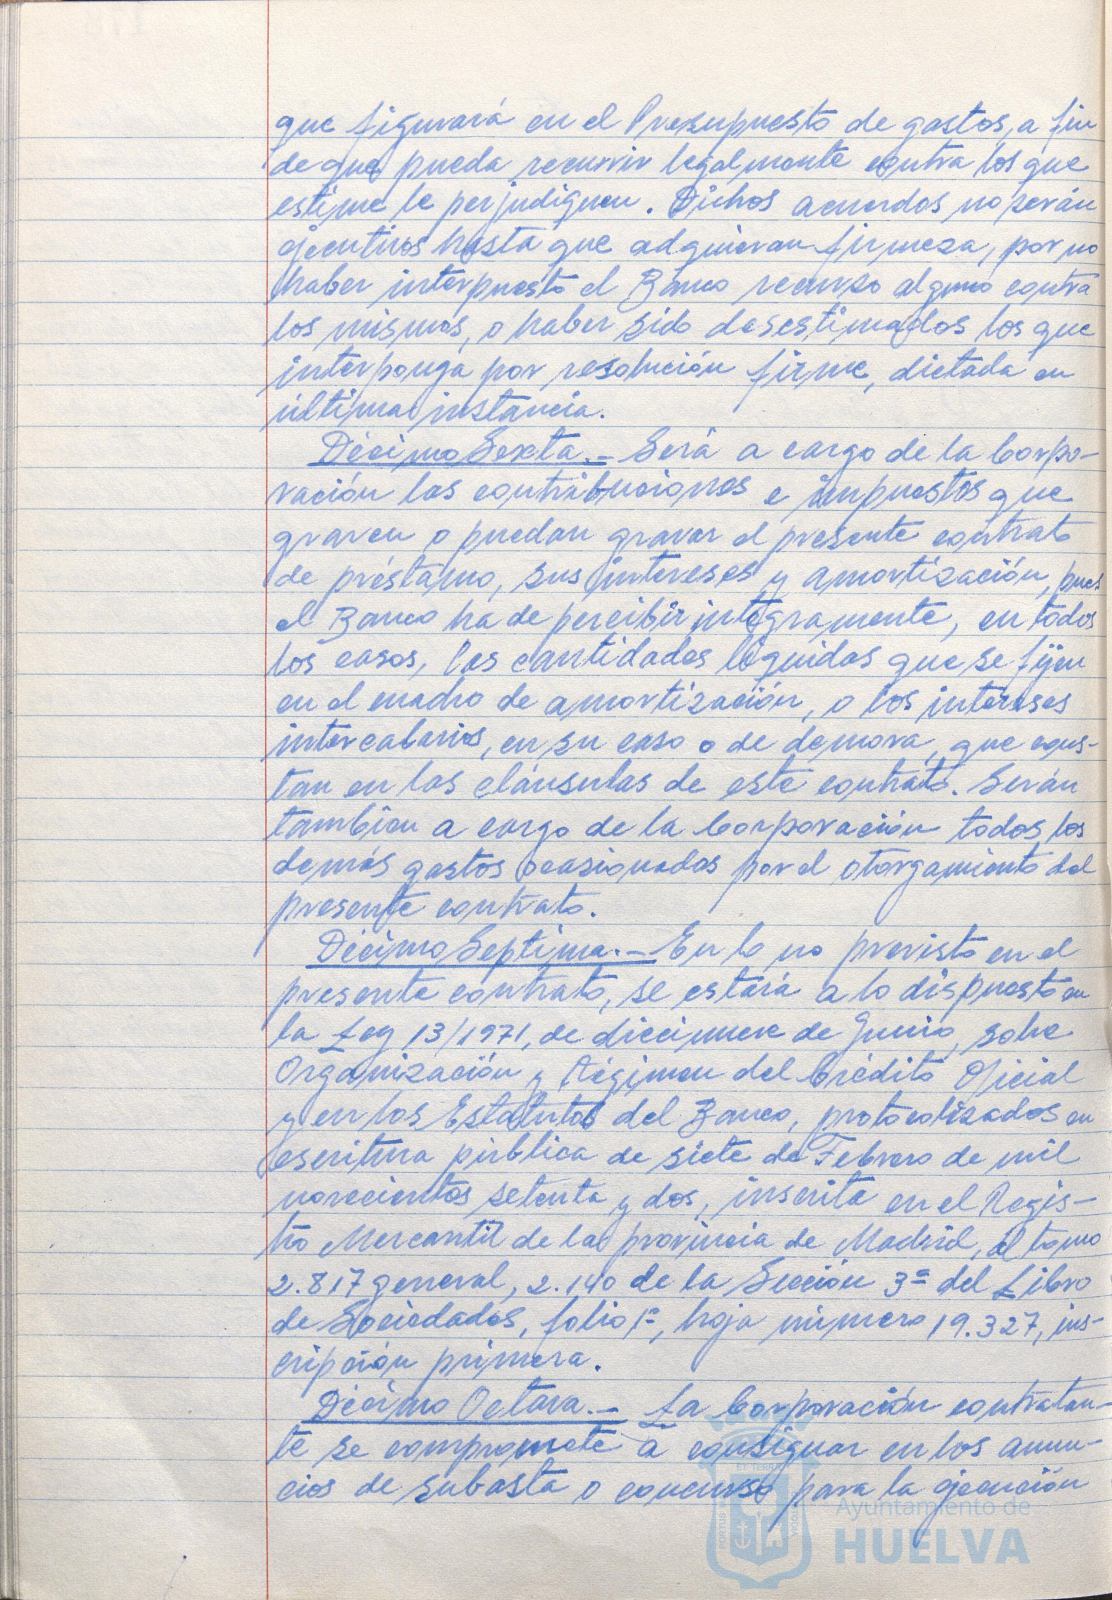 que figurará en el Presupuesto de gastos, a fin
de que pueda recurrir legalmente contra los que
estime le perjudiquen. Dichos acuerdos no serán
ejecutivos hasta que adquieran firmeza, por no
haber interpuesto el Banco recurso alguno contra
los mismos, o haber sido desestimados los que
interponga por resolución firme, dictada en
última instancia.
Décimo Sexta.- Será a cargo de la Corpo-
ración las contribuciones e impuestos que
graven o puedan gravar el presente contrato
de préstamo, sus intereses y amortización, pues
el Banco ha de percibir íntegramente, en todos
los casos, las cantidades líquidas que se fijen
en el cuadro de amortización, o los intereses
intercalarios, en su caso o de demora, que cons-
tan en las cláusulas de este contrato. Serán
también a cargo de la Corporación todos los
demás gastos ocasionados por el otorgamiento del
presente contrato.
Décimo Septima.- En lo no previsto en el
presente contrato, se estará a lo dispuesto en
la Ley 13/1971, de diecinueve de Junio, sobre
Organización y Régimen del Crédito Oficial
y en los Estatutos del Banco, protocolizados en
escritura pública de siete de Febrero de mil
novecientos setenta y dos, inscrita en el Regis-
tro Mercantil de la provincia de Madrid, al tomo
2.817 general, 2.140 de la Sección 3ª del Libro
de Sociedades, folio 1º, hoja número 19.327, ins-
cripción primera.
Décimo Octava.- La Corporación contratan-
te se compromete a consignar en los anun-
cios de subasta o concurso para la ejecución
Ayuntamiento de
HUELVA